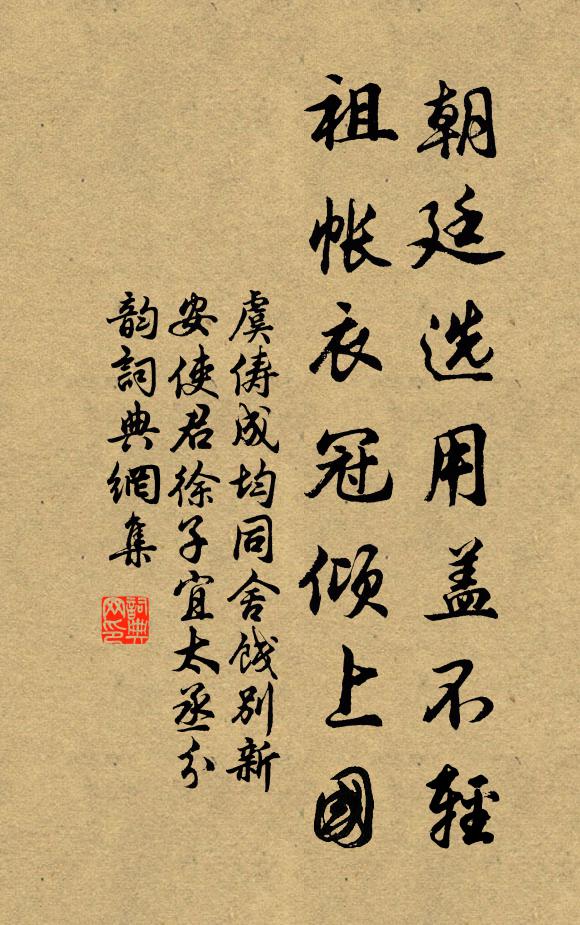 朝廷选用盖不轻
祖帐衣冠倾上國
虞俦成均同舍饯别新
安使君徐子宜太丞分
韵詞典網集
詞典网印